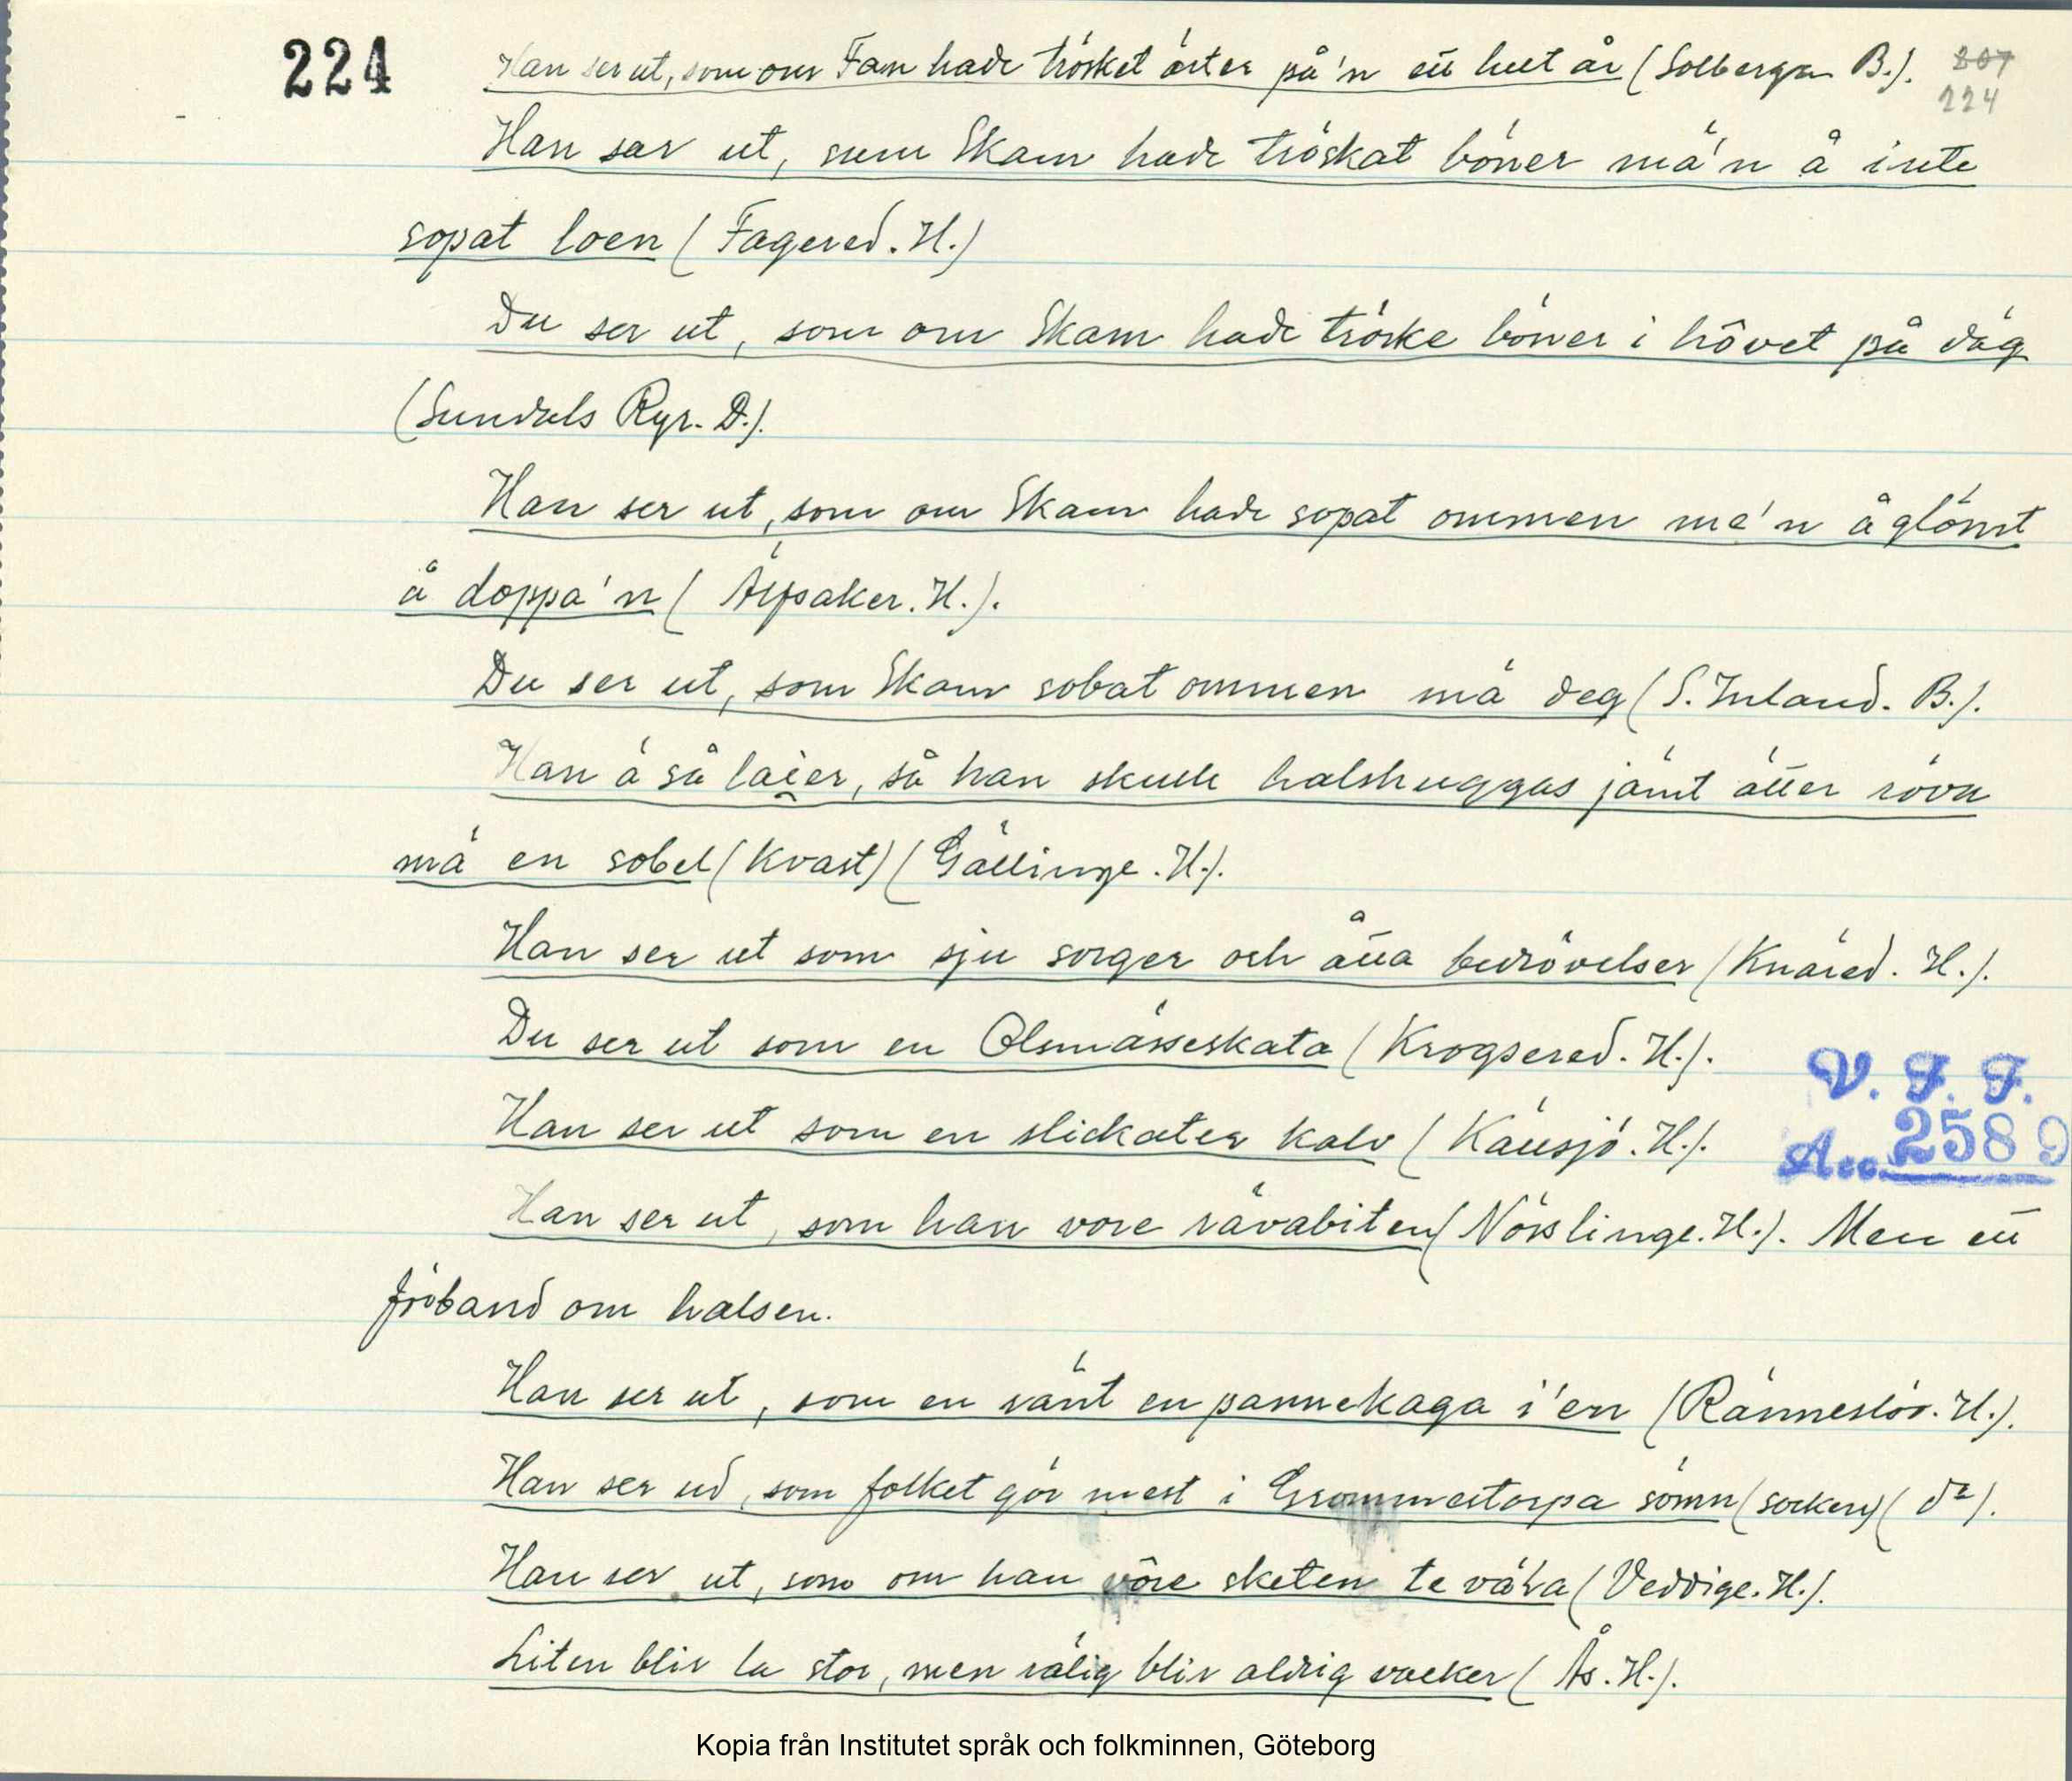 224
Han ser ut, som om Fan hade trösket ärter på'n ett helt år (Solberga B.). 207
224
Han sär ut, sum Skam hade tröskat böner mä'n å inte
sopat loen (Fagered. H.)
Du ser ut, som om Skam hade tröske böner i hôvet på däg
(Sundals Ryr. D.).
Han ser ut, som om Skam hade sopat ommen me'n å glömt
å doppa'n (Älfsåker. H.).
Du ser ut, som Skam sobat ommen mä deg (S. Inland. B.).
Han ä så laier, så han skulle halshuggas jämt ätter röva
mä en sobel (kvast) (Gällinge. H.).
Han ser ut som sju sorger och åtta bedrövelser (Knäred. H.).
Du ser ut som en Olsmässeskata (Krogsered. H.).
Han ser ut som en slickater kalv (Källsjö. H.).
Han ser ut, som han vore rävabiten (Nösslinge. H.). Men ett
fröband om halsen.
Han ser ut, som en vänt en pannekaga i'en (Ränneslöv. H.).
Han ser ud, som folket gör mest i Grommetorpa sömn (socken) (d:o).
Han ser ut, som om han vôre sketen te väla (Veddige. H.).
Liten blir la stor, men rälig blir aldrig vacker (Ås. H.).
V. F. F.
Acc. 2589
Kopia från Institutet språk och folkminnen, Göteborg